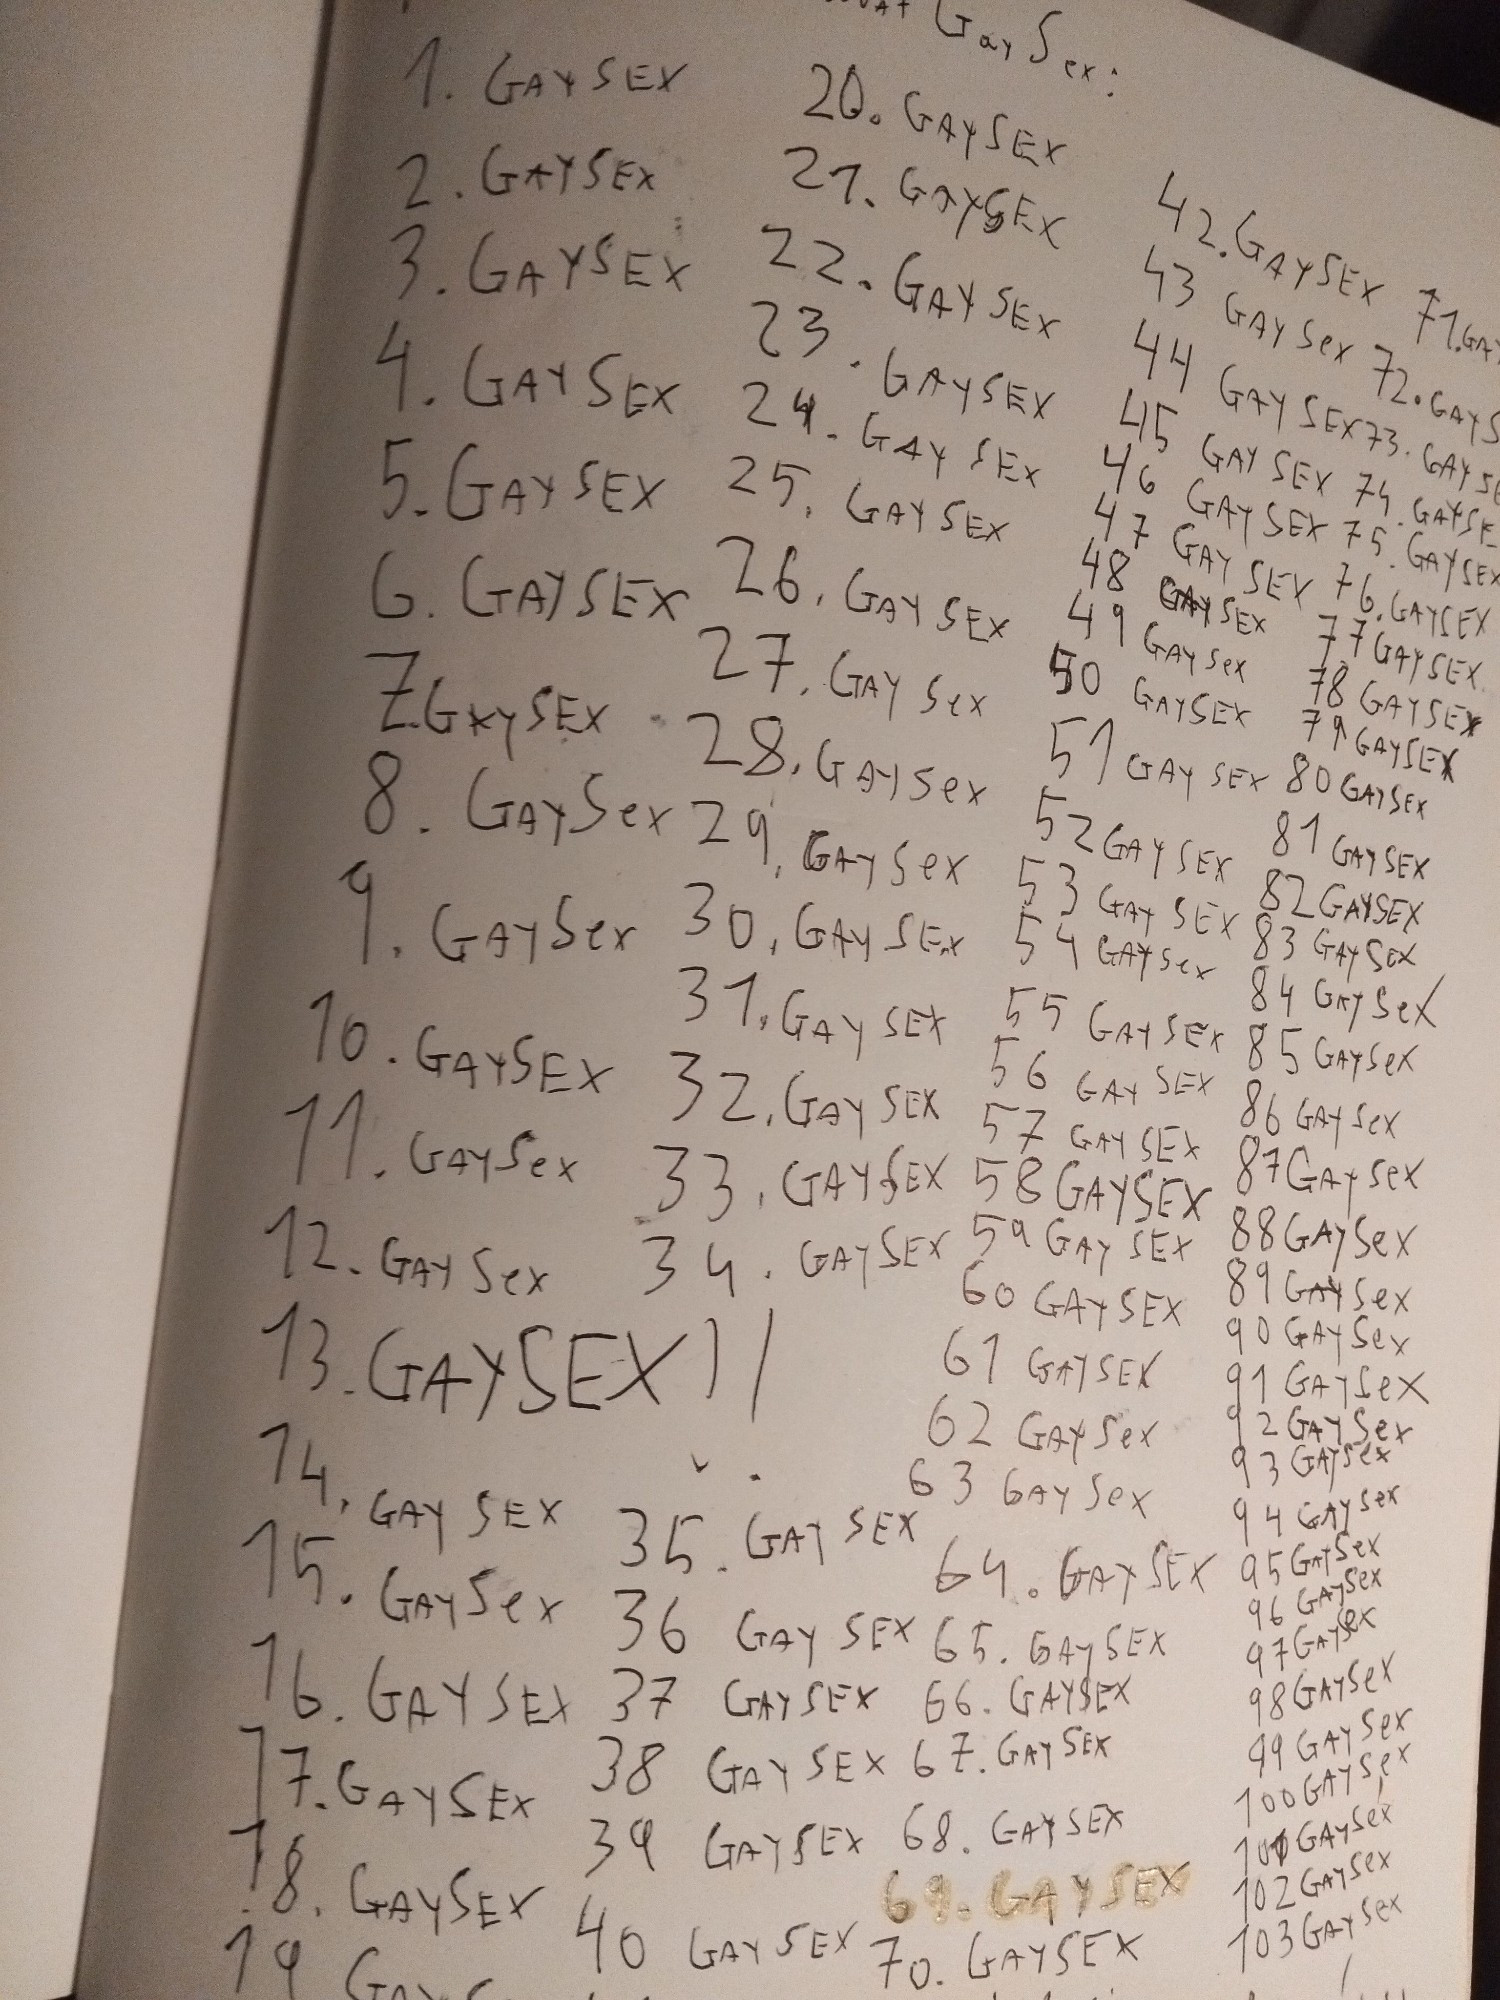 Gay Sex:
1. GAYSEX
2. GAYSEX
3. GAYSEX
4. GAYSEX
5. GAYSEX
6. GAYSEX
7. GAYSEX
8. GAYSex
9. GAYSex
10. GAYSEX
11. GAYSex
12. GAYSex
13. GAYSEX!!
14. GAYSEX
15. GAYSex
16. GAYSEX
17. GAYSEX
18. GAYSEX
19
20. GAYSEX
21. GAYSEX
22. GAYSEX
23. GAYSEX
24. GAY SEX
25. GAY SEX
26. GAY SEX
27. GAY Sex
28. GAYSex
29. GAYSex
30. GAY SEX
31. GAY SEX
32. GAY SEX
33. GAYSEX
34. GAYSEX
35. GAY SEX
36 GAY SEX
37 GAYSEX
38 GAY SEX
39 GAYSEX
40 GAY SEX
42. GAYSEX
43 GAY Sex
44 GAY SEX
45 GAY SEX
46 GAY SEX
47 GAY SEX
48 GAYSEX
49 GAY sex
50 GAYSEX
51 GAY SEX
52 GAY SEX
53 GAY SEX
54 GAYSex
55 GAYSEX
56 GAY SEX
57 GAY SEX
58 GAYSEX
59 GAY SEX
60 GAYSEX
61 GAYSEX
62 GAYSex
63 GAY Sex
64. GAYSEX
65. GAYSEX
66. GAYSEX
67. GAYSEX
68. GAYSEX
69. GAYSEX
70. GAYSEX
71. GAY
72. GAYS
73. GAYSE
74. GAYSE
75. GAYSEX
76. GAYSEX
77 GAYSEX
78 GAYSEX
79 GAYSEX
80 GAYSEX
81 GAYSEX
82 GAYSEX
83 GAYSEX
84 GAYSeX
85 GAYSex
86 GAYSex
87 GAYSex
88 GAYSex
89 GAYSex
90 GAYSex
91 GAYSeX
92 GAYSex
93 GAYSex
94 GAYSex
95 GAYSex
96 GAYSex
97 GAYSex
98 GAYSeX
99 GAYSex
100 GAYSex
101 GAYSex
102 GAYSex
103 GAYSex